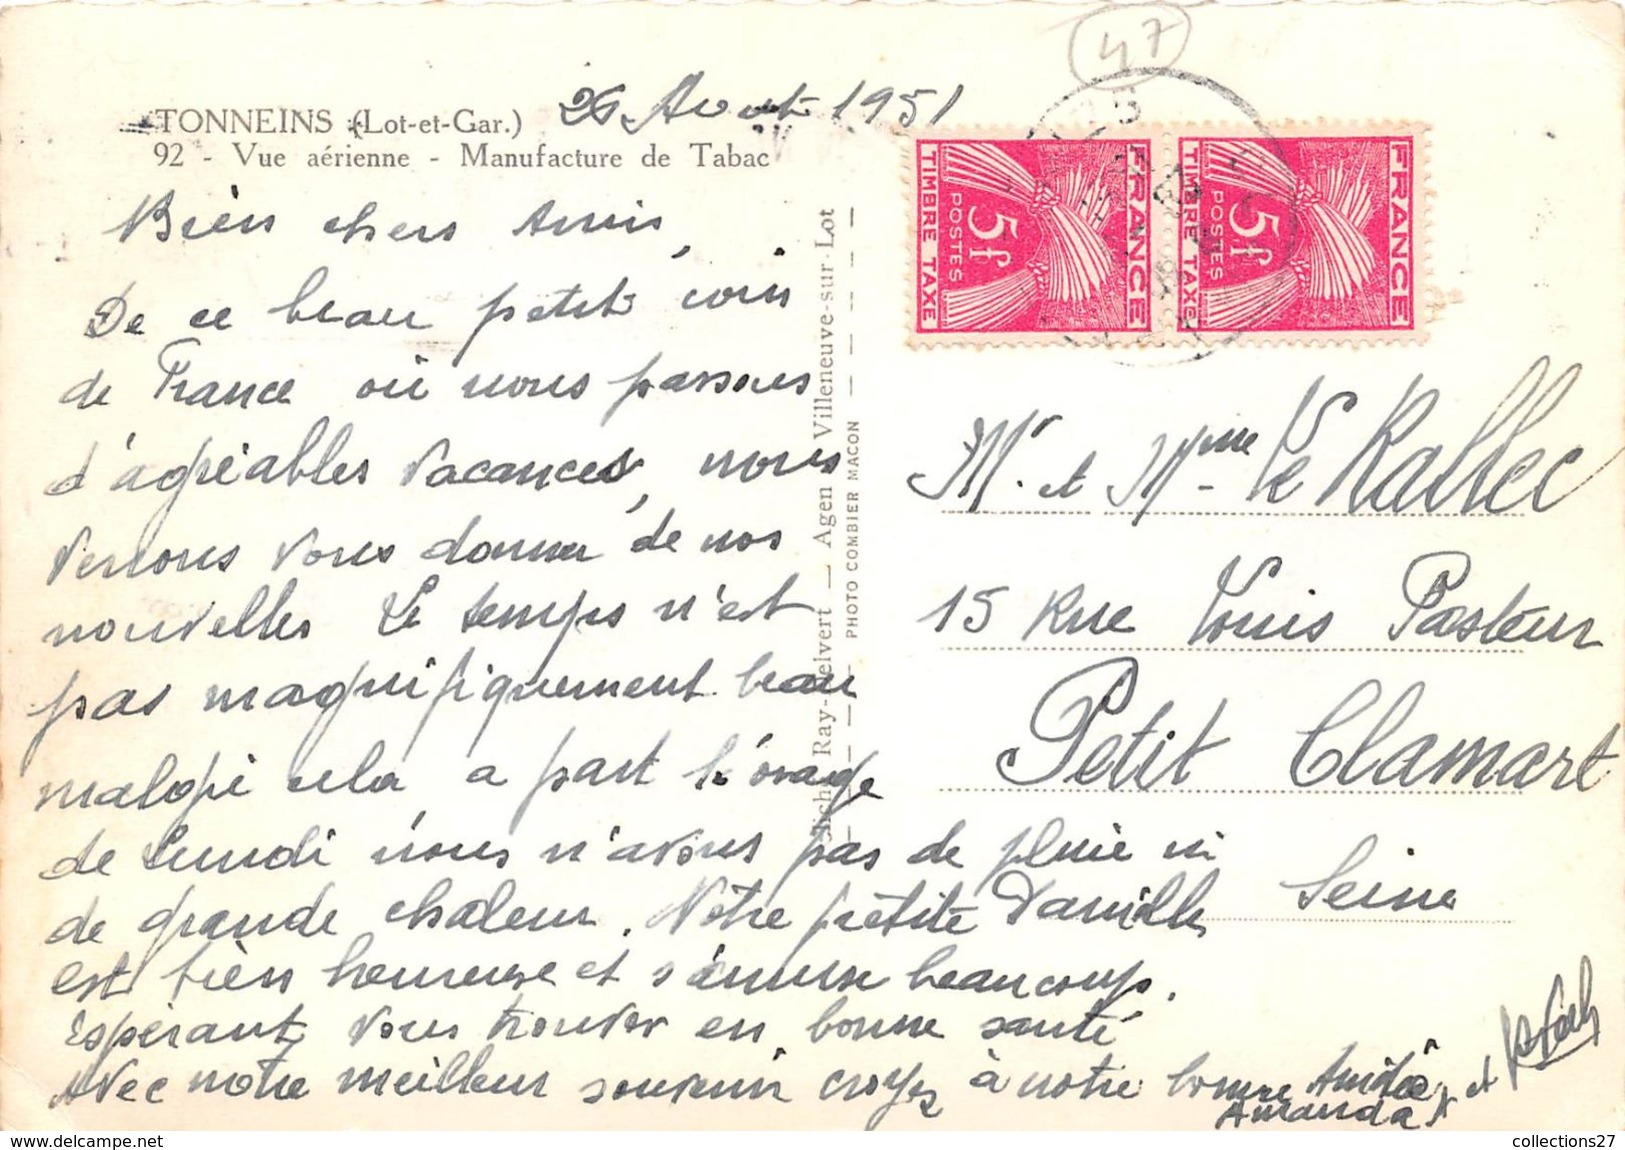 47
TONNEINS (Lot-et-Gar.)
26 Aout 1951
92 - Vue aérienne - Manufacture de Tabac
Bien chers Amis,
De ce beau petit coin
de France où nous passons
d'agréables vacances, nous
venons vous donner de nos
nouvelles Le temps n'est
pas magnifiquement beau
malgré cela a part l'orage
de Lundi nous n'avons pas de pluie ni
de grande chaleur. Notre petite Danielle
est bien heureuse et s'amuse beaucoup.
Espérant vous trouver en bonne santé
Avec notre meilleur souvenir croyez à notre bonne Amitié
Amanda et
Ray-Delvert — Agen Villeneuve-sur-Lot
PHOTO COMBIER MACON
FRANCE
5f
POSTES
TIMBRE TAXE
FRANCE
5f
POSTES
TIMBRE TAXE
Mr. et Mme Le Rallec
15 Rue Louis Pasteur
Petit Clamart
Seine
collections27